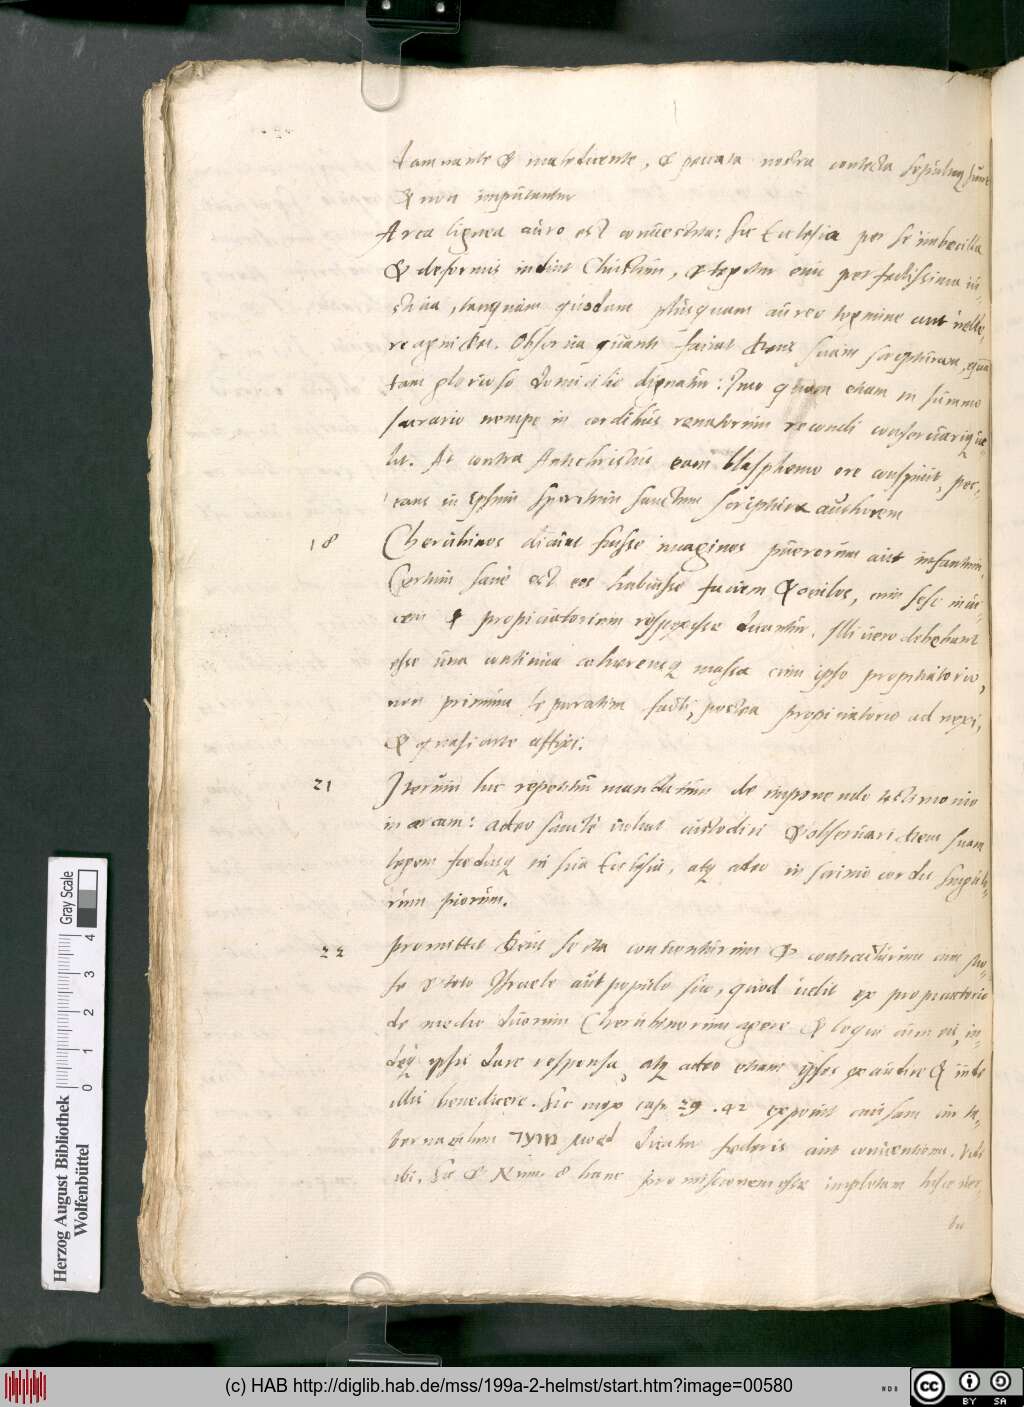 damnante & maledicente, & peccata nostra contecta sepultaq sunt
& non imputantur
Arca lignea auro est conuestita: sic Ecclesia per se imbecilla
& deformis induit Christum, & tegitur eius perfectissima iu-
stitia, tanquam quodam plusquam aureo tegmine aut uelle-
re agni Dei. Obserua quanti faciat Deus suam scripturam, quam
tam glorioso domicilio dignatur: Imo quam etiam in summo
sacrario nempe in cordibus renatorum recondi conseruariq ue-
lit. At contra Antichristus eam blasphemo ore conspuit, pec-
cans in ipsum spiritum sanctum scripturae authorem
18 Cherubinos aiunt fuisse imagines puerorum aut infantum,
Certum sane est eos habuisse faciem & oculos, cum sese inui-
cem & propiciatorium respexisse dicantur. Illi uero debebant
esse una continua cohaerensq massa cum ipso propitiatorio,
non primum separatim facti, postea propiciatorio adnexi,
& quasi arte affixi.
21 Iterum hic repetitur mandatum de imponendo testimonio
in arcam: adeo sancte uoluit custodiri & obseruari Deus suam
legem foedusq in sua Ecclesia, atq adeo in scrinio cordis singulo-
rum piorum.
22 Promittit Deus se ita conuenturum & contracturum cum Mo-
se & toto Israele aut populo suo, quod uelit ex propiciatorio
de medio duorum Cherubinorum agere & loqui cum eis, in-
deq ipsis dare responsa, atq adeo etiam ipsos exaudire & inde
illis benedicere. Sic mox cap. 29 . 42 exponit causam cur ta-
bernaculum מועד moed dicatur foederis aut conuentionis. Vide
ibi. Sic & Num. 8 hanc promissionem esse impletam hisce uer-
bis
Herzog August Bibliothek
Wolfenbüttel
0 1 2 3 4 Gray Scale
(c) HAB http://diglib.hab.de/mss/199a-2-helmst/start.htm?image=00580
cc BY SA